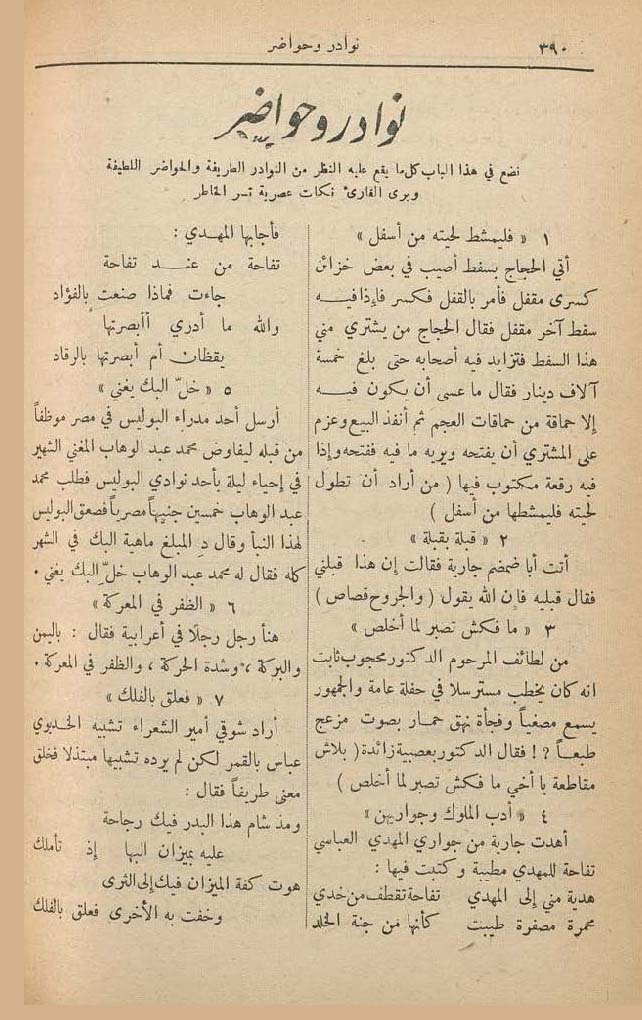 ٣٩٠
نوادر وحواضر
نوادر وحواضر
نضع في هذا الباب كل ما يقع عليه النظر من النوادر الطريفة والحواضر اللطيفة
ويرى القارئ نكات عصرية تسر الخاطر
١ « فليمشط لحيته من أسفل »
أتي الحجاج بسفط أصيب في بعض خزائن
كسرى مقفل فأمر بالقفل فكسر فإذا فيه
سفط آخر مقفل فقال الحجاج من يشتري مني
هذا السفط فتزايد فيه أصحابه حتى بلغ خمسة
آلاف دينار فقال ما عسى أن يكون فيه
إلا حماقة من حماقات العجم ثم أنفذ البيع وعزم
على المشتري أن يفتحه ويريه ما فيه ففتحه وإذا
فيه رقعة مكتوب فيها ( من أراد أن تطول
لحيته فليمشطها من أسفل )
٢ « قبلة بقبلة »
أتت أبا ضمضم جارية فقالت إن هذا قبلني
فقال قبليه فإن الله يقول ( والجروح قصاص )
٣ « ما فكش تصبر لما أخلص »
من لطائف المرحوم الدكتور محجوب ثابت
انه كان يخطب مسترسلا في حفلة عامة والجمهور
يسمع مصغياً وفجأة نهق حمار بصوت مزعج
طبعاً ?! فقال الدكتور بعصبية زائدة ( بلاش
مقاطعة يا أخي ما فكش تصبر لما أخلص )
٤ « أدب الملوك وجواريهن »
أهدت جارية من جواري المهدي العباسي
تفاحة للمهدي مطيبة وكتبت فيها :
هدية مني إلى المهدي تفاحة تقطف من خدي
محمرة مصفرة طيبت كأنها من جنة الخلد
فأجابها المهدي :
تفاحة من عند تفاحة
جاءت فماذا صنعت بالفؤاد
والله ما أدري أأبصرتها
يقظان أم أبصرتها بالرقاد
٥ « خلّ البك يغني »
أرسل أحد مدراء البوليس في مصر موظفاً
من قبله ليفاوض محمد عبد الوهاب المغني الشهير
في إحياء ليلة بأحد نوادي البوليس فطلب محمد
عبد الوهاب خمسين جنيهاً مصرياً فصعق البوليس
لهذا النبأ وقال د المبلغ ماهية البك في الشهر
كله فقال له محمد عبد الوهاب خلّ البك يغني .
٦ « الظفر في المعركة »
هنأ رجل رجلاً في أعرابية فقال : باليمن
والبركة ، وشدة الحركة ، والظفر في المعركة .
٧ « فعلق بالفلك »
أراد شوقي أمير الشعراء تشبيه الخديوي
عباس بالقمر لكن لم يرده تشبيها مبتذلا فخلق
معنى طريفاً فقال :
ومذ شام هذا البدر فيك رجاحة
عليه بميزان البها إذ تأملك
هوت كفة الميزان فيك إلى الثرى
وخفت به الأخرى فعلق بالفلك